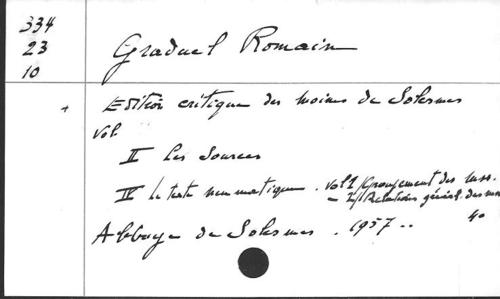 334
23
10
Graduel Romain
+ Edition critique des moines de Solesmes
Vol.
II Les Sources
IV Le texte neumatique. vol 1/Groupement des mss.
- II/Relations généal. des mss
Abbaye de Solesmes. 1957.. 4o